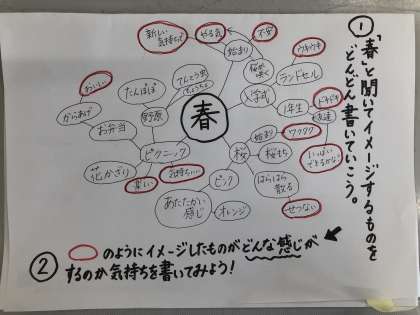 ①
「春」と聞いてイメージするものを
どんどん書いていこう。
新しい
気持ち
やる気
不安
始まり
桜が
咲く
ウキウキ
ランドセル
入学式
1年生
ドキドキ
友達
いっぱい
できるかな?
おいしい
からあげ
お弁当
たんぽぽ
てんとう虫
ちょうちょ
野原
春
ピクニック
花かざり
楽しい
気持ちいい
桜
始まり
ワクワク
桜もち
はらはら
散る
せつない
ピンク
あたたかい
感じ
オレンジ
② のようにイメージしたものがどんな感じが
するのか気持ちを書いてみよう!